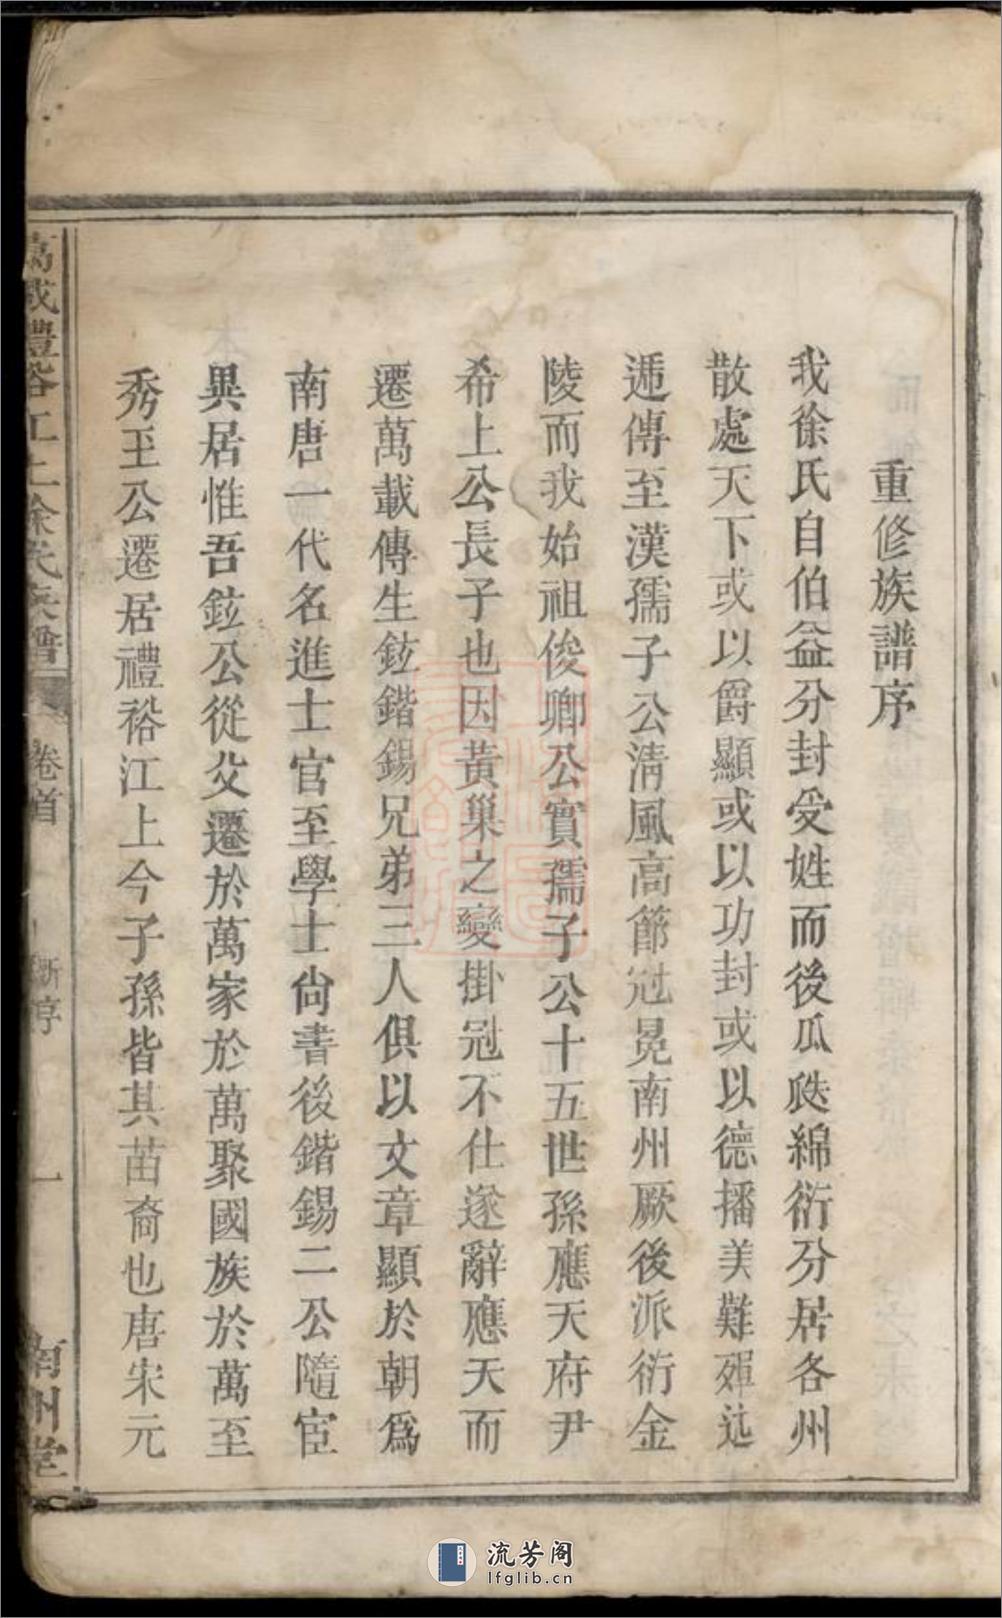 重修族譜序
我徐氏自伯益分封受姓而後瓜瓞綿衍分居各州
散處天下或以爵顯或以功封或以德播美難殫述
遞傳至漢孺子公清風高節冠冕南州厥後派衍金
陵而我始祖俊卿公實孺子公十五世孫應天府尹
希上公長子也因黃巢之變掛冠不仕遂辭應天而
遷萬載傳生鉉鍇錫兄弟三人俱以文章顯於朝爲
南唐一代名進士官至學士尙書後鍇錫二公隨宦
異居惟吾鉉公從父遷於萬家於萬聚國族於萬至
秀王公遷居禮裕江上今子孫皆其苗裔也唐宋元
萬成豊裕江上徐氏族譜
卷首
新序
一
南州堂
流芳阁
lfglib.cn